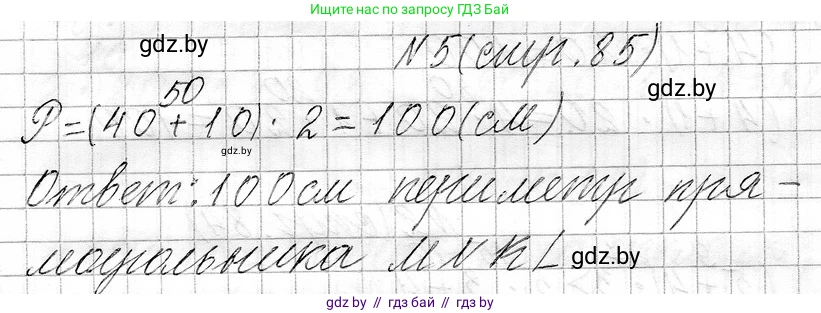 Ищите нас по запросу ГДЗ Бай
gdz.by
N5 (стр. 85)
gdz.by
50
P=(40+10)·2=100(см)
gdz.by
Ответ: 100см периметр пря-
моугольника MNKL
gdz.by
gdz.by // гдз бай // гдз by